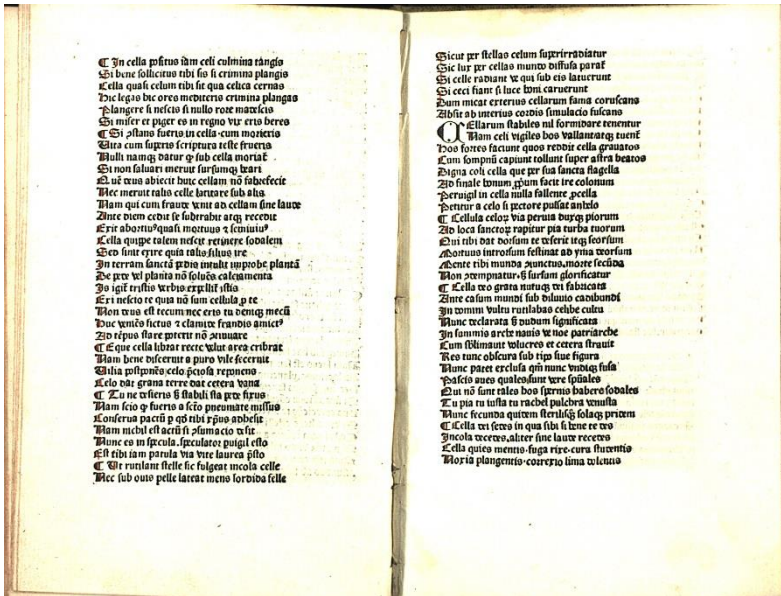 ¶ In cella positus iam celi culmina tangis
Si bene sollicitus tibi sis si crimina plangis
Cella quasi celum tibi sit qua celica cernas
Hic legas hic ores mediteris crimina plangas
Plangere si nescis si nullo rore madescis
Si miser et piger es in regno vix eris heres
¶ Si ꝯstans fueris in cella cum morieris
Vita cum superis scriptura teste frueris
Nulli namqꝫ datur ꝙ sub cella moriať
Si non saluari meruit sursumqꝫ beari
Quē deus abiecit huic cellam nō fabrefecit
Nec meruit talis celle latitare sub alis
Nam qui cum fraude venit ad cellam sine laude
Ante diem cedit se subtrahit atqꝫ recedit
Exit abortiuꝰ quasi mortuus ⁊ semiuiuꝰ
Cella quippe talem nescit retinere sodalem
Sed sinit exire quia talis filius ire
In terram sanctā pedis intulit improbe plantā
De pede vel planta nō soluēs calciamenta
Is igit᷑ tristis verbis expellit᷑ istis
Exi nescio te quia nō sum cellula ꝓ te
Non deus est tecum nec eris tu deniqꝫ mecū
Huc venēs fictus ⁊ clamide fraudis amictꝰ
Ad tēpus stare poterit nō
¶ Eque cella librat recte velut area cribrat
Nam bene discernit a puro vile secernit
Vilia postponēs celo p̄ciosa reponens
Celo dat grana terre dat cetera vana
¶ Tu ne desieris sꝫ stabili sta pede fixus
Nam scio ꝙ fueris a sc̄o pneumate missus
Conserua pactū ꝑ qď tibi xp̄us adhesit
Nam nichil est actū si ꝯsumacio desit
Nunc es in specula. speculator puigil esto
Est tibi iam patula via vite laurea p̄sto
¶ Ut rutilant stelle sic fulgeat incola celle
Nec sub ouis pelle lateat mens sordida felle
Sicut per stellas celum superirradiatur
Sic lux per cellas mundo diffusa parať
Si celle radiant ve qui sub eis latuerunt
Si ceci fiant si luce boni caruerunt
Dum micat exterius cellarum fama coruscans
Absit ab interius cordis simulacio fuscans
CEllarum stabiles nil formidare tenentur
Nam celi vigiles hos vallant atqꝫ tuent᷑
Hos fortes faciunt quos reddit cella grauatos
Cum sompnū capiunt tollunt super astra beatos
Digna coli cella que per sua sancta flagella
Ad finale bonum facit ire colonum
Peruigil in cella nulla fallente ꝓcella
Petitur a celo si pectore pulsat anhelo
¶ Cellula celoꝝ via peruia duxqꝫ piorum
Ad loca sanctoꝝ rapitur pia turba tuorum
Qui tibi dat dorsum te deserit itqꝫ seorsum
Mortuus introrsum festinat ad yma deorsum
Mente tibi munda ꝯiunctus. morte secūda
Non ꝯtempnatur. sꝫ sursum glorificatur
¶ Cella deo grata nutuqꝫ dei fabricata
Ante casum mundi sub diluuio cadibundi
In domini vultu rutilabas celibe cultu
Nunc declarata sꝫ dudum significata
In summis arche nauis ve noe patriarche
Cum sb̄limauit volucres et cetera strauit
Res tunc obscura sub tipo siue figura
Nunc patet exclusa qm̄ nunc vndiqꝫ fusa
Pascis aues quales sunt vere spūales
Qui nō sunt tales hos spernis habere sodales
Tu pia tu iusta tu rachel pulchra venusta
Nunc fecunda quidem sterilisqꝫ solaqꝫ pridem
¶ Cella dei sedes in qua sibi si bene te des
Incola decedes. aliter sine laude recedes
Cella quies mentis. fuga rixe. cura studentis
Noxia plangentis. correxio lima dolentis